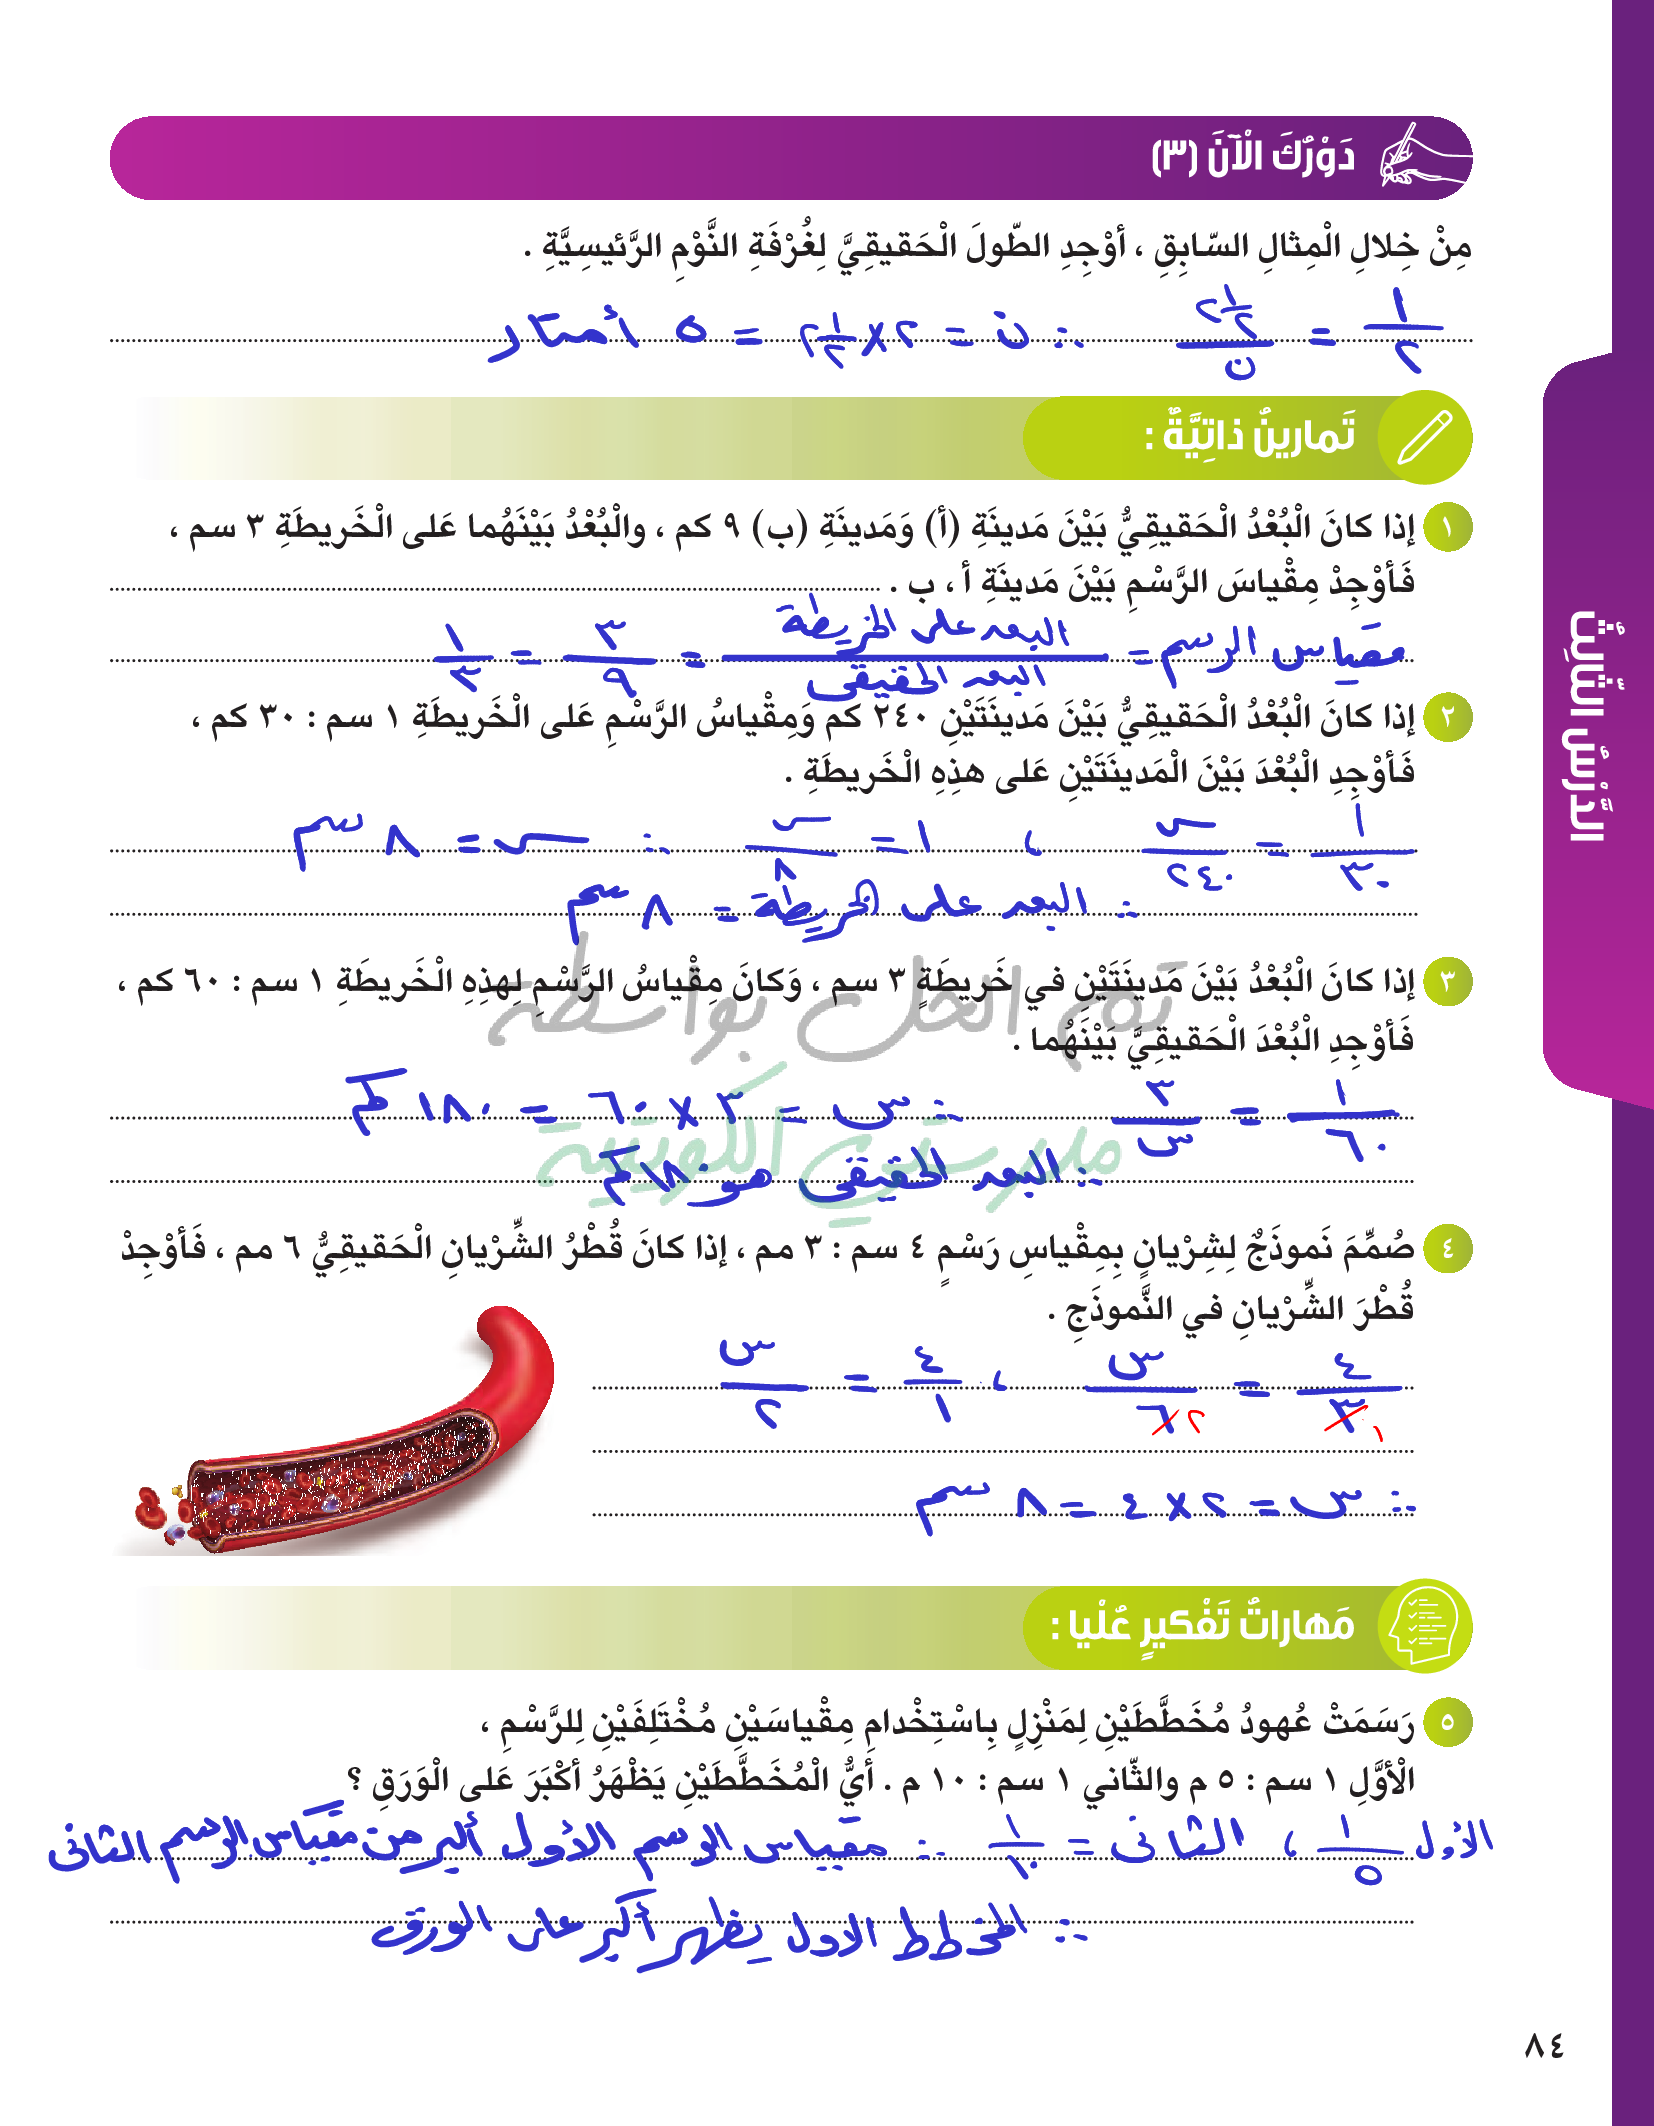 دَوْرُكَ الْآنَ (٣)
مِنْ خِلالِ الْمِثالِ السّابِقِ ، أوْجِدِ الطّولَ الْحَقيقِيَّ لِغُرْفَةِ النَّوْمِ الرَّئيسِيَّةِ .
١/٢ = ٢ ١/٢ / ن ∴ ن = ٢ × ٢ ١/٢ = ٥ أمتار
تَمارينُ ذاتِيَّةٌ :
١ إذا كانَ الْبُعْدُ الْحَقيقِيُّ بَيْنَ مَدينَةِ (أ) وَمَدينَةِ (ب) ٩ كم ، والْبُعْدُ بَيْنَهُما عَلى الْخَريطَةِ ٣ سم ،
فَأوْجِدْ مِقْياسَ الرَّسْمِ بَيْنَ مَدينَةِ أ ، ب .
مقياس الرسم = البعد على الخريطة / البعد الحقيقى = ٣/٩ = ١/٣
٢ إذا كانَ الْبُعْدُ الْحَقيقِيُّ بَيْنَ مَدينَتَيْنِ ٢٤٠ كم وَمِقْياسُ الرَّسْمِ عَلى الْخَريطَةِ ١ سم : ٣٠ كم ،
فَأوْجِدِ الْبُعْدَ بَيْنَ الْمَدينَتَيْنِ عَلى هذِهِ الْخَريطَةِ .
١/٣٠ = س/٢٤٠ ، ١ = س/٨ ∴ س = ٨ سم
∴ البعد على الخريطة = ٨ سم
٣ إذا كانَ الْبُعْدُ بَيْنَ مَدينَتَيْنِ في خَريطَةٍ ٣ سم ، وَكانَ مِقْياسُ الرَّسْمِ لِهذِهِ الْخَريطَةِ ١ سم : ٦٠ كم ،
تم الحل بواسطة
فَأوْجِدِ الْبُعْدَ الْحَقيقِيَّ بَيْنَهُما .
١/٦٠ = ٣/س ∴ س = ٣ × ٦٠ = ١٨٠ كم
مدرستي الكويتية
∴ البعد الحقيقى هو ١٨٠ كم
٤ صُمِّمَ نَموذَجٌ لِشِرْيانٍ بِمِقْياسِ رَسْمٍ ٤ سم : ٣ مم ، إذا كانَ قُطْرُ الشِّرْيانِ الْحَقيقِيُّ ٦ مم ، فَأوْجِدْ
قُطْرَ الشِّرْيانِ في النَّموذَجِ .
٤/٣ = س/٦ ، ٤/١ = س/٢
١ ٢
∴ س = ٢ × ٤ = ٨ سم
مَهاراتُ تَفْكيرٍ عُلْيا :
٥ رَسَمَتْ عُهودُ مُخَطَّطَيْنِ لِمَنْزِلٍ بِاسْتِخْدامِ مِقْياسَيْنِ مُخْتَلِفَيْنِ لِلرَّسْمِ ،
الْأوَّلِ ١ سم : ٥ م والثّاني ١ سم : ١٠ م . أيُّ الْمُخَطَّطَيْنِ يَظْهَرُ أكْبَرَ عَلى الْوَرَقِ ؟
الأول ١/٥ ، الثانى = ١/١٠ ∴ مقياس الرسم الأول أكبر من مقياس الرسم الثانى
∴ المخطط الاول يظهر أكبر على الورق
الدَّرْسُ الثّالِثُ
٨٤